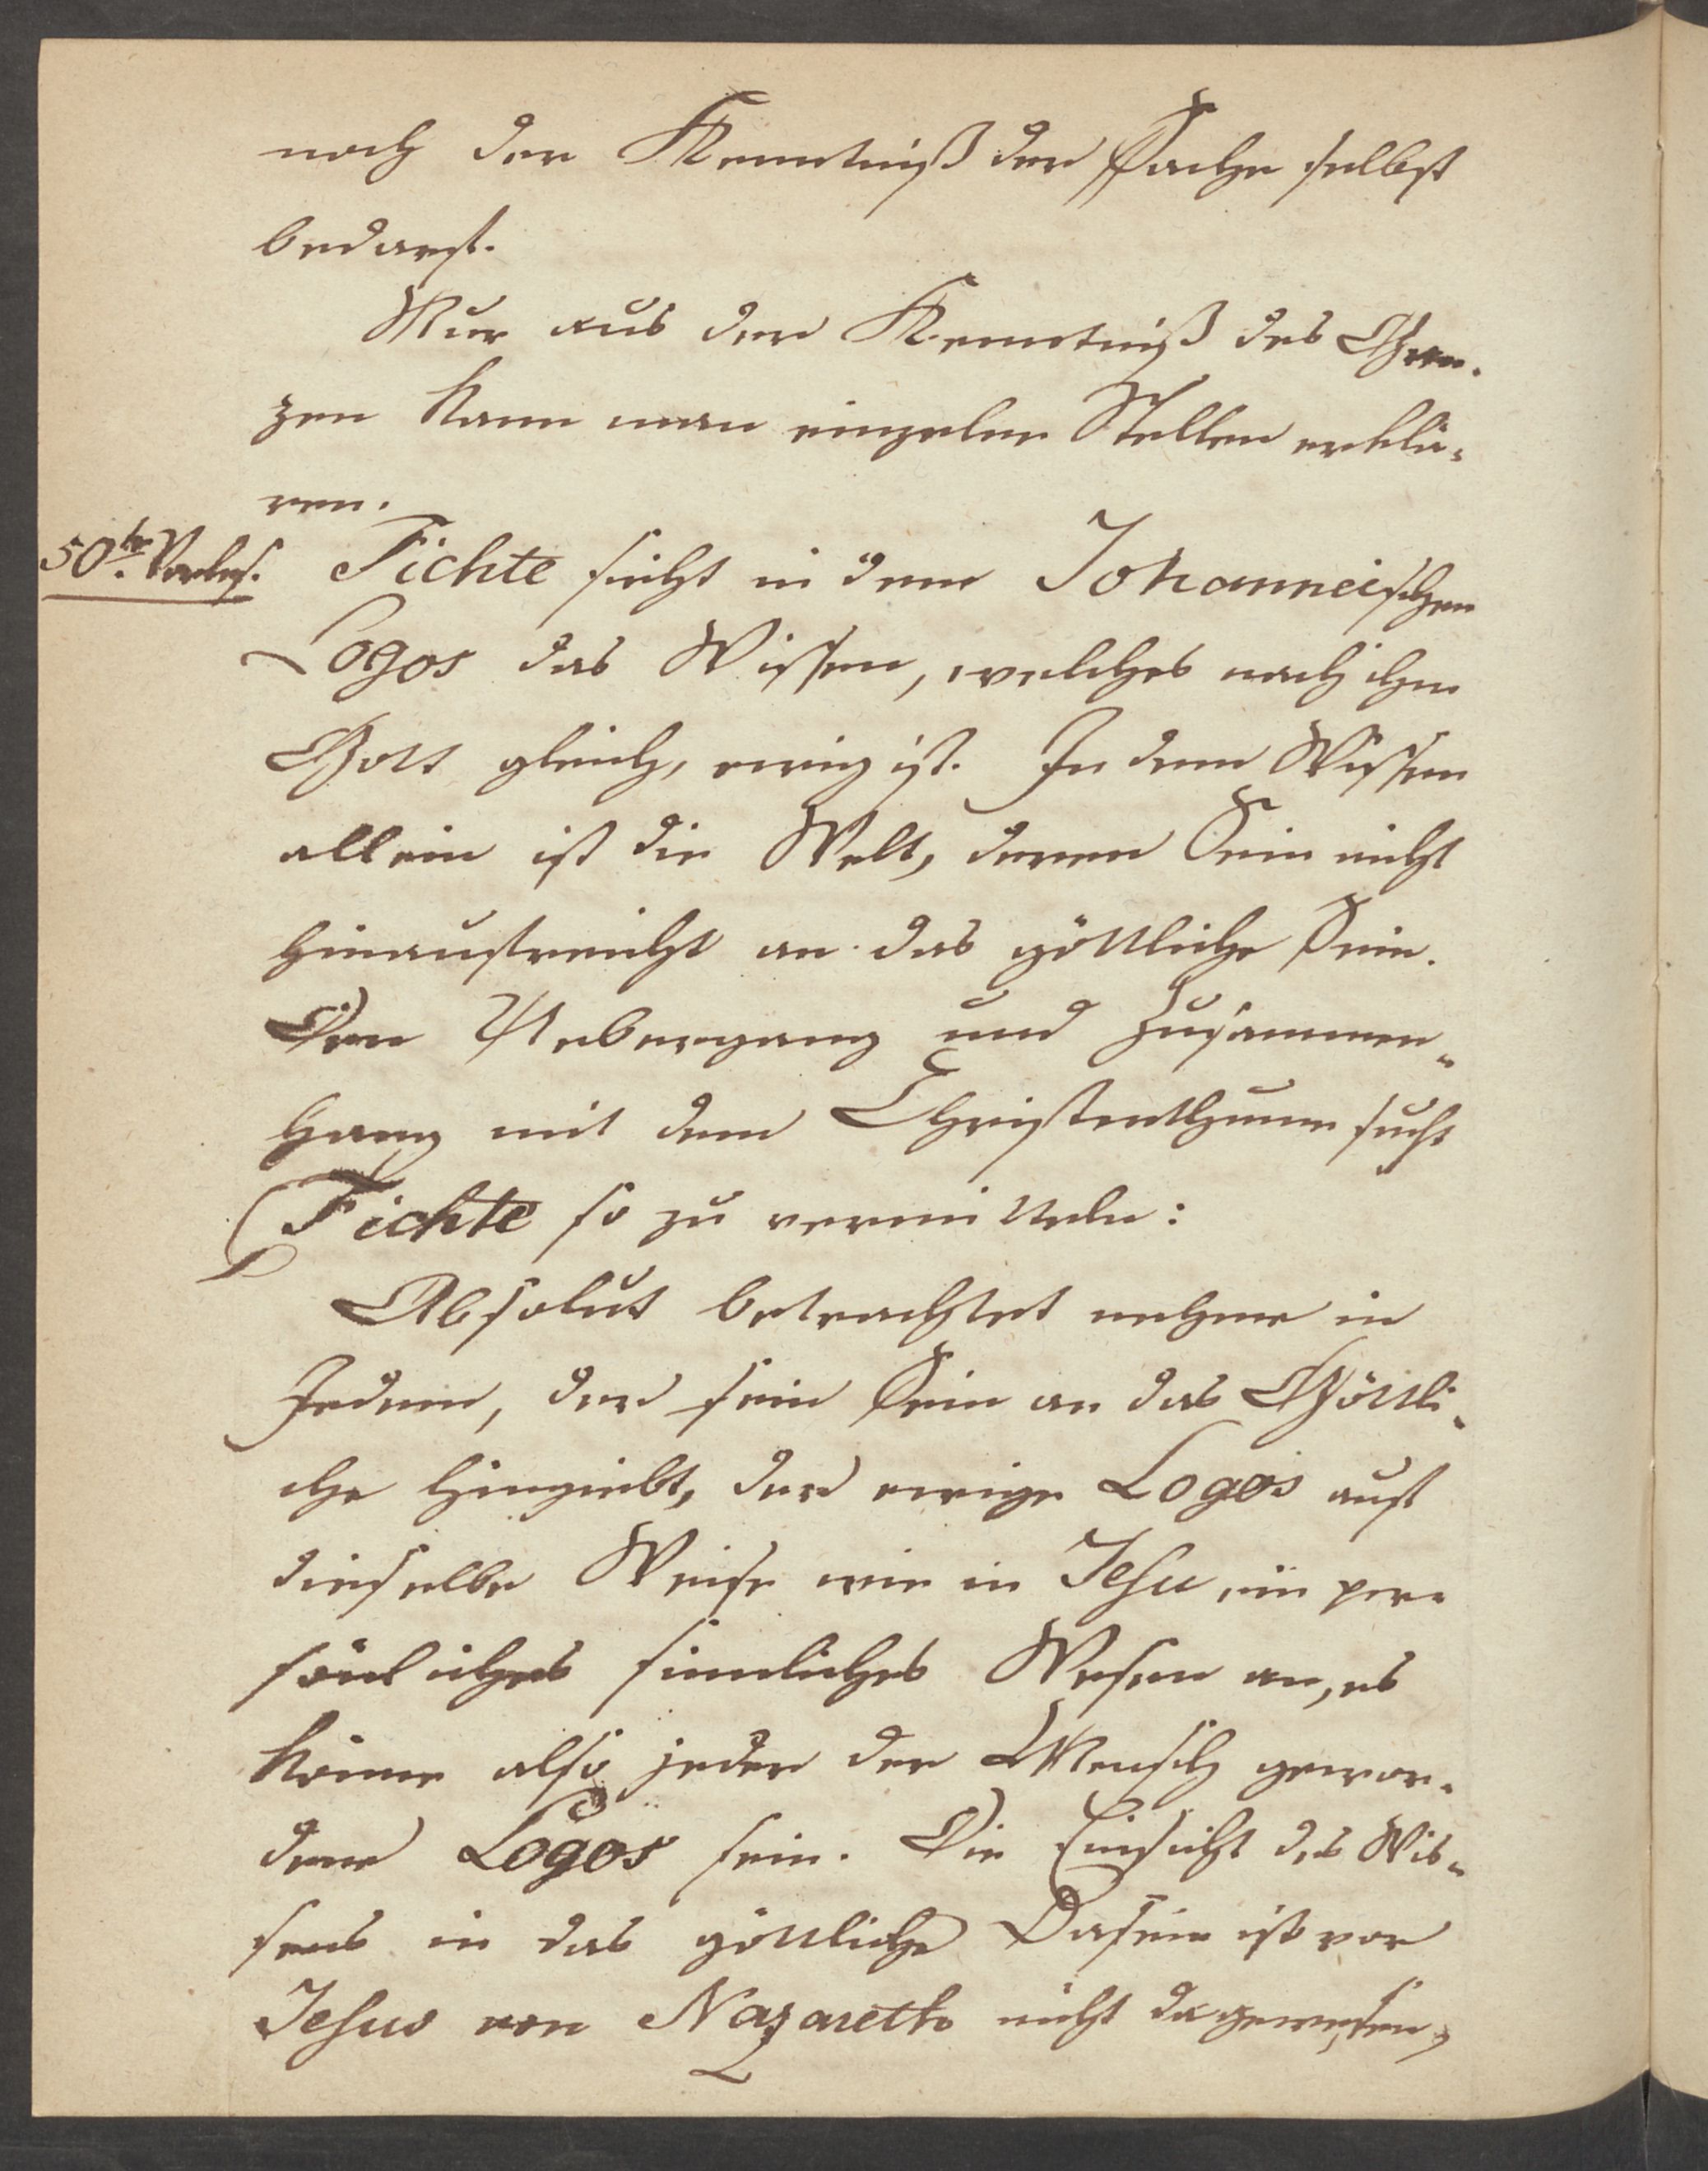 noch der Kenntniß der Sache selbst
bedarf.
Nur aus der Kenntniß des Gan-
zen kann man einzelne Stellen erklä-
ren.
50te Vorles. Fichte sieht in dem Johanneischen
Logos das Wissen, welches nach ihm
Gott gleich, ewig ist. In dem Wissen
allein ist die Welt, deren Sein nicht
hinaufreicht an das göttliche Sein.
Den Uebergang und Zusammen-
hang mit dem Christenthum sucht
Fichte so zu vermitteln:
Absolut betrachtet nehme in
Jedem, der sein Sein an das Göttli-
che hingiebt, der ewige Logos auf
dieselbe Weise wie in Jesu, ein per-
sönliches sinnliches Wesen an, es
könne also jeder der Mensch gewor-
dene Logos sein. Die Einsicht des Wis-
sens in das göttliche Dasein ist vor
Jesus von Nazareth nicht dagewesen,